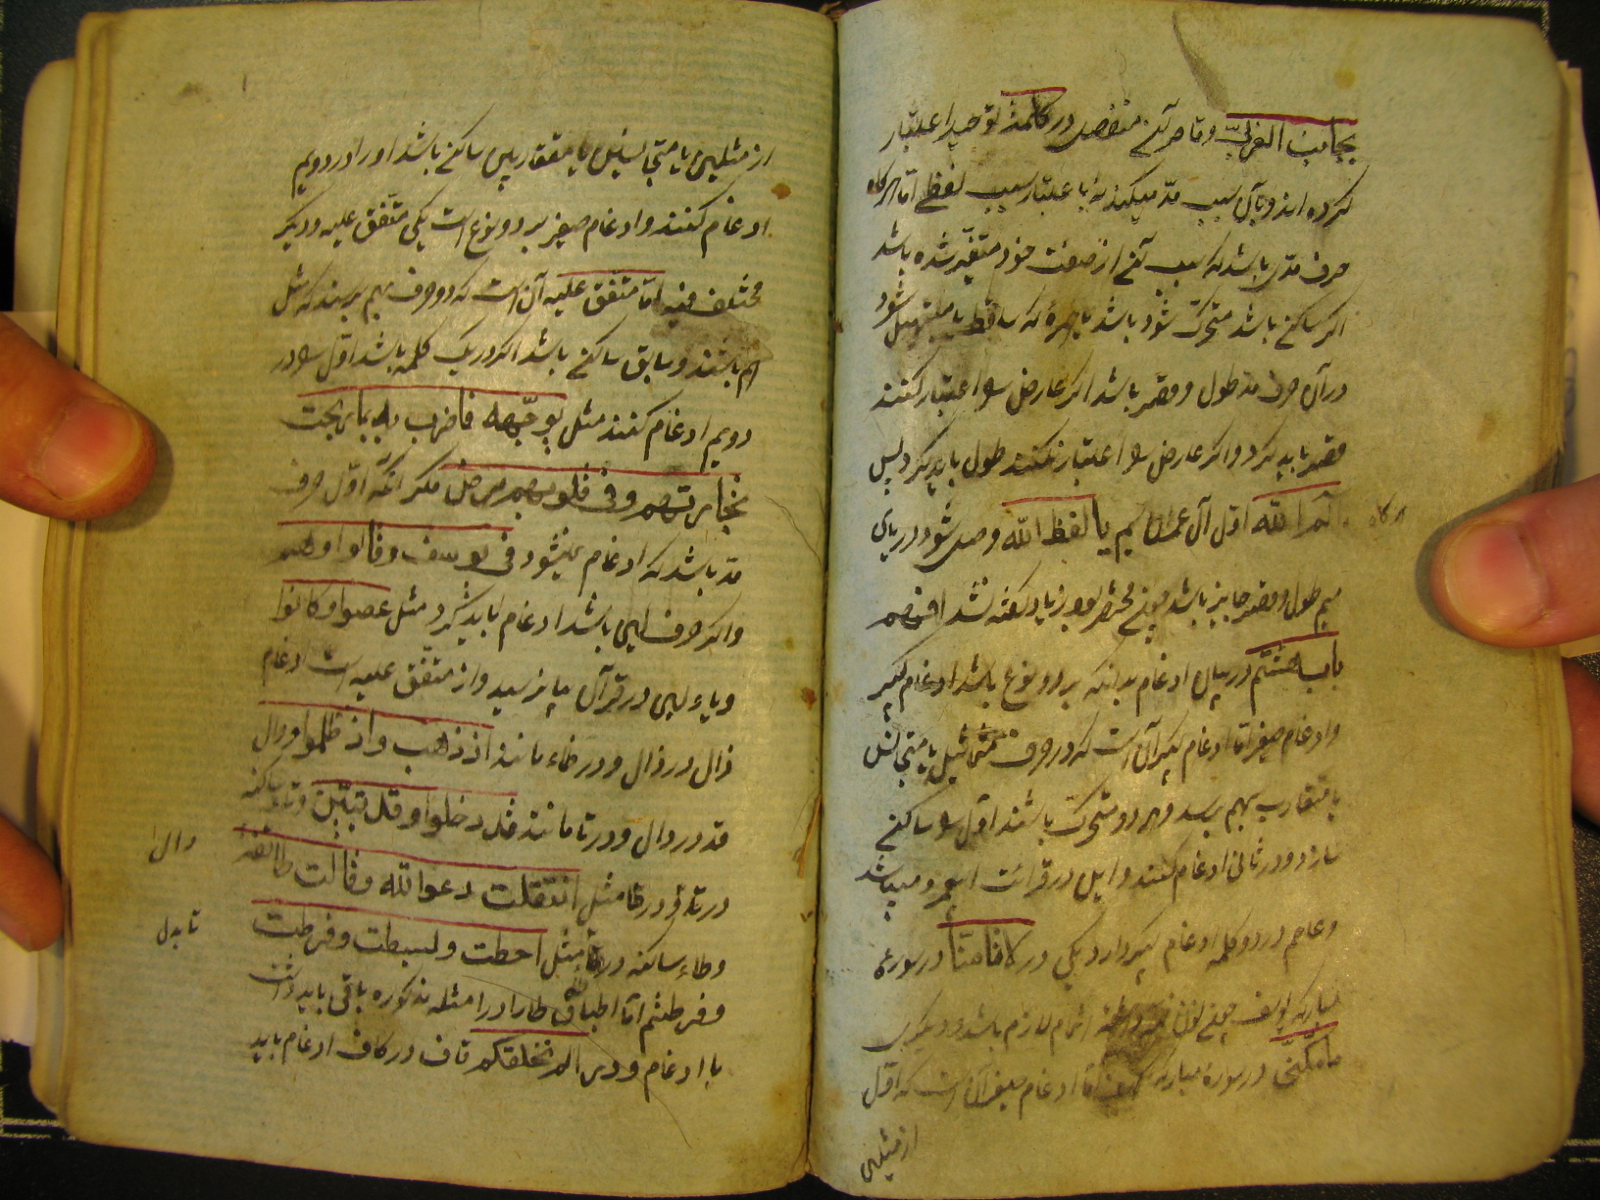 بجانب الغربیّ وقاصر آنچه منفصل در کلمهٔ توحید اعتبار
کرده اند و بآن سبب مدّ میکند نه با عتبار سبب لفظے امّا هرکاه
حرف مدّی باشد که سبب آنچه از صفت خود متغیّر شده باشد
اکر ساکنے باشد متحرک شود باشد یا همزهٔ که ساقط یا مسهّل شود
در آن حرف مدّ طول و قصر باشد اکر عارض را اعتبار کنند
قصر باید کرد و اکر عارض را اعتبار نکنند طول باید کرد پس
هرکاه
آلم الله اوّل آل عمران میم با لفظ الله وصل شود در یای
میم طول و قصر جایز باشد فافهم
باب هشتم در بیان ادغام بدانکه بر دو نوع باشد ادغام کبیر
و ادغام صغیر امّا ادغام کبیر آن است که دو حرف متماثلین یا متجانسین
یا متقارب بهم رسد و هر دو متحرک باشند اوّل را ساکنے
سازد و در ثانی ادغام کنند و این در قرائت ابو عمرو میباشد
و عاصم در دو کلمه ادغام کبیر دارد یکی در لا تامنّا در سورهٔ
مبارکه یوسف اشمام لازم باشد و دیکری
ما مکّنّی در سورهٔ مبارکه کهف امّا ادغام صغیر آن است که اوّل
از مثلین
از مثلین یا متجانسین یا متقاربین ساکنے باشد او را در دویم
ادغام کنند و ادغام صغیر بر دو نوع است یکی متّفق علیه و دیکر
مختلف فیه امّا متّفق علیه آن است که دو حرف بهم رسند که مثل
هم باشند و سابق ساکنے باشد اکر در یک کلمه باشد اوّل را در
دویم ادغام کنند مثل یوجّهه فاضرب به بما ربحت
تجارتهم و فی قلوبهم مرض مکر آنکه اوّل حرف
مدّ باشد که ادغام نمیشود فی یوسف و قالوا و هم
و اکر حرف لین باشد ادغام باید کرد مثل عصوا و کانوا
و یاء لین در قرآن یا نرسید و از متّفق علیه است ادغام
ذال در ذال و در ظاء مانند اذ ذهب و اذ ظلموا و دال
قد در دال و در تا مانند قد دخلوا و قد تبیّن و تاء ساکنه
دال
در تا و در طا مثل اثقلت دعوا الله و قالت طائفة
تا بدل
و طاء ساکنه در تا مثل احطت و لبسطت و فرطت
و فرطتم امّا اطباق طا را در امثله مذکوره باقی باید داشت
با ادغام و در الم نخلقکم قاف در کاف ادغام باید